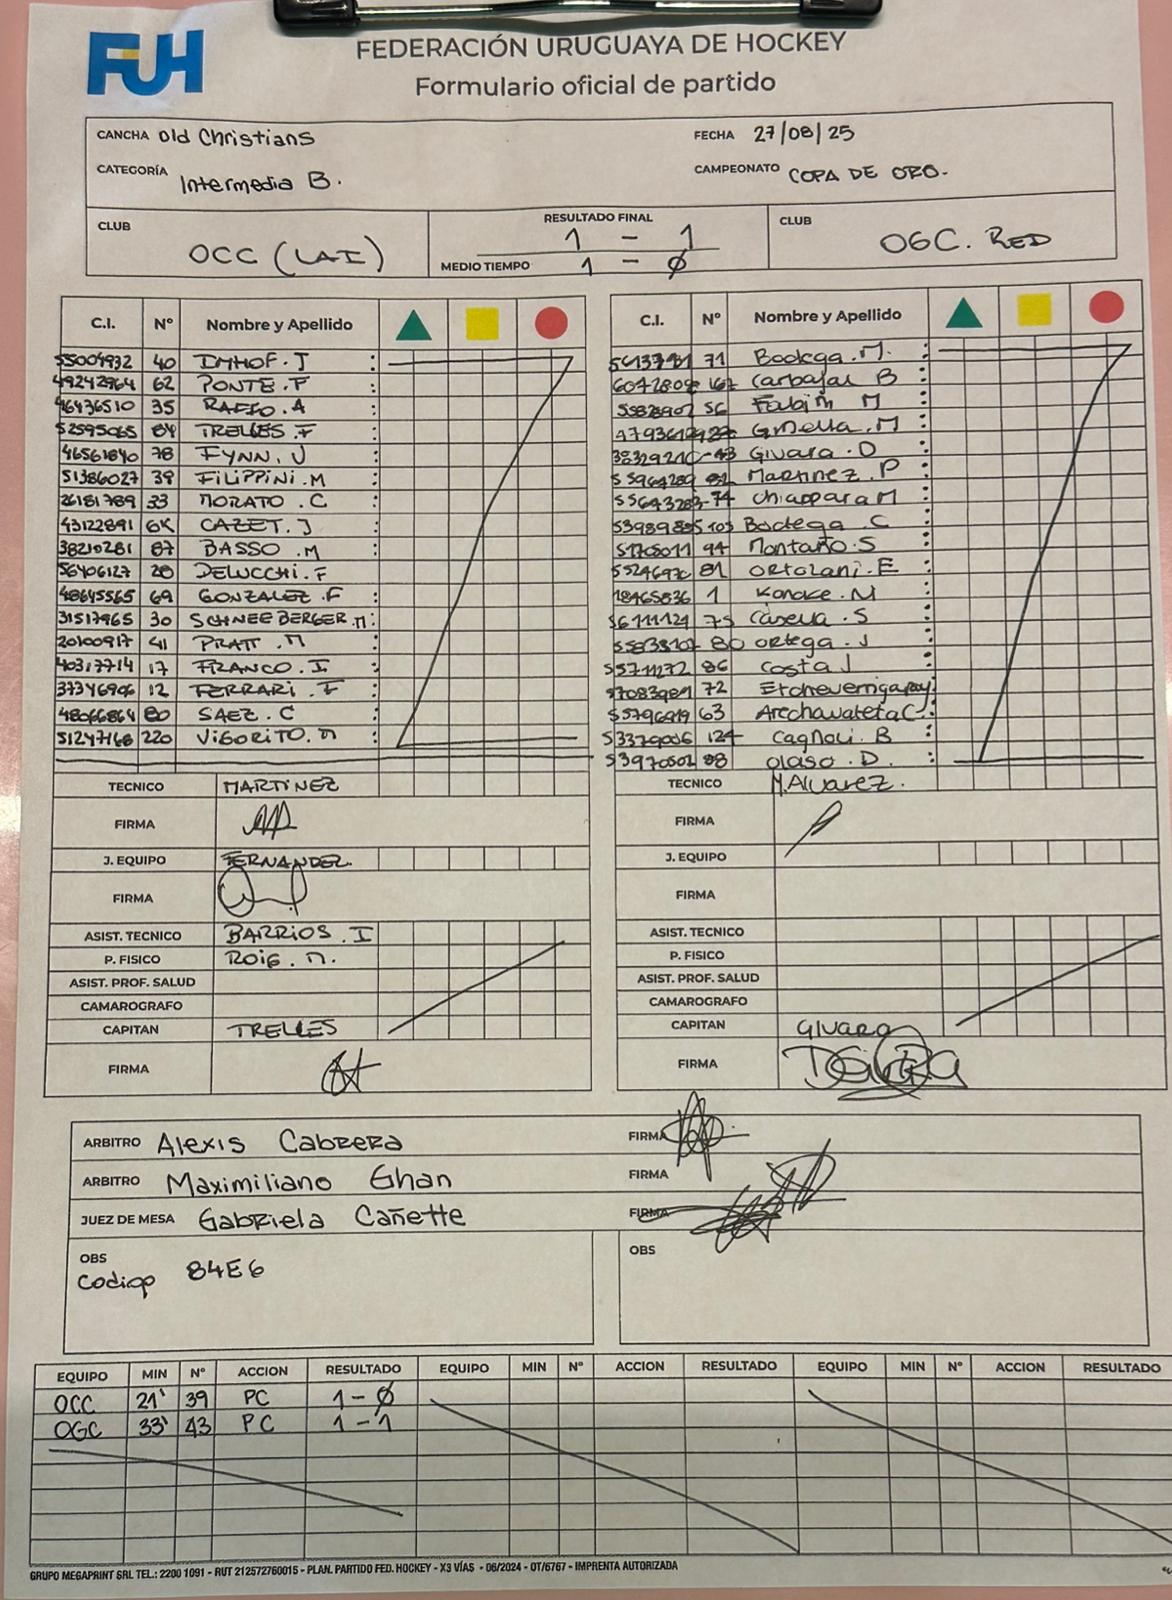 FUH
FEDERACIÓN URUGUAYA DE HOCKEY
Formulario oficial de partido
CANCHA Old Christians
FECHA 27/08/25
CATEGORÍA Intermedia B.
CAMPEONATO COPA DE ORO.
CLUB OCC (LAI)
RESULTADO FINAL 1 - 1
MEDIO TIEMPO 1 - Ø
CLUB OGC. RED
C.I. Nº Nombre y Apellido
55004932 40 IMHOF. J
49242964 62 PONTE. F
46436510 35 RAFFO. A
52595065 84 TRELLES. F
46561840 78 FYNN. J
51386027 39 FILIPPINI. M
26181789 33 MORATO. C
43122891 GK CAZET. J
38210281 87 BASSO. M
56406127 28 DELUCCHI. F
48645565 69 GONZALEZ. F
31517965 30 SCHNEEBERGER. M
20100917 41 PRATT. M
40317714 17 FRANCO. I
37346906 12 FERRARI. F
48066864 80 SAEZ. C
51247168 220 VIGORITO. M
TECNICO MARTINEZ
FIRMA
J. EQUIPO FERNANDEZ.
FIRMA
ASIST. TECNICO BARRIOS. I
P. FISICO ROIG. M.
ASIST. PROF. SALUD
CAMAROGRAFO
CAPITAN TRELLES
FIRMA
C.I. Nº Nombre y Apellido
71 Bodega. M.
Carbajal B
56 M
M
43 Givara. D
Martinez. P
74 Chiappara M
103 Bodega. C
94 Montaño. S
81 Ortolani. E
18465836 1 M
75 Casella. S
80 Ortega. J
55711272 86 Costa J
72
63
53379006 124 B
53970502 88 Olaso. D.
TECNICO M. Alvarez.
FIRMA
J. EQUIPO
FIRMA
ASIST. TECNICO
P. FISICO
ASIST. PROF. SALUD
CAMAROGRAFO
CAPITAN GIVARA
FIRMA
ARBITRO Alexis Cabrera FIRMA
ARBITRO Maximiliano Ghan FIRMA
JUEZ DE MESA Gabriela Cañette FIRMA
OBS
Codigo 84E6
OBS
EQUIPO MIN Nº ACCION RESULTADO EQUIPO MIN Nº ACCION RESULTADO EQUIPO MIN Nº ACCION RESULTADO
OCC 21' 39 PC 1 - Ø
OGC 33' 43 PC 1 - 1
GRUPO MEGAPRINT SRL TEL.: 2200 1091 - RUT 212572760015 - PLAN. PARTIDO FED. HOCKEY - X3 VÍAS - 06/2024 - OT/6767 - IMPRENTA AUTORIZADA